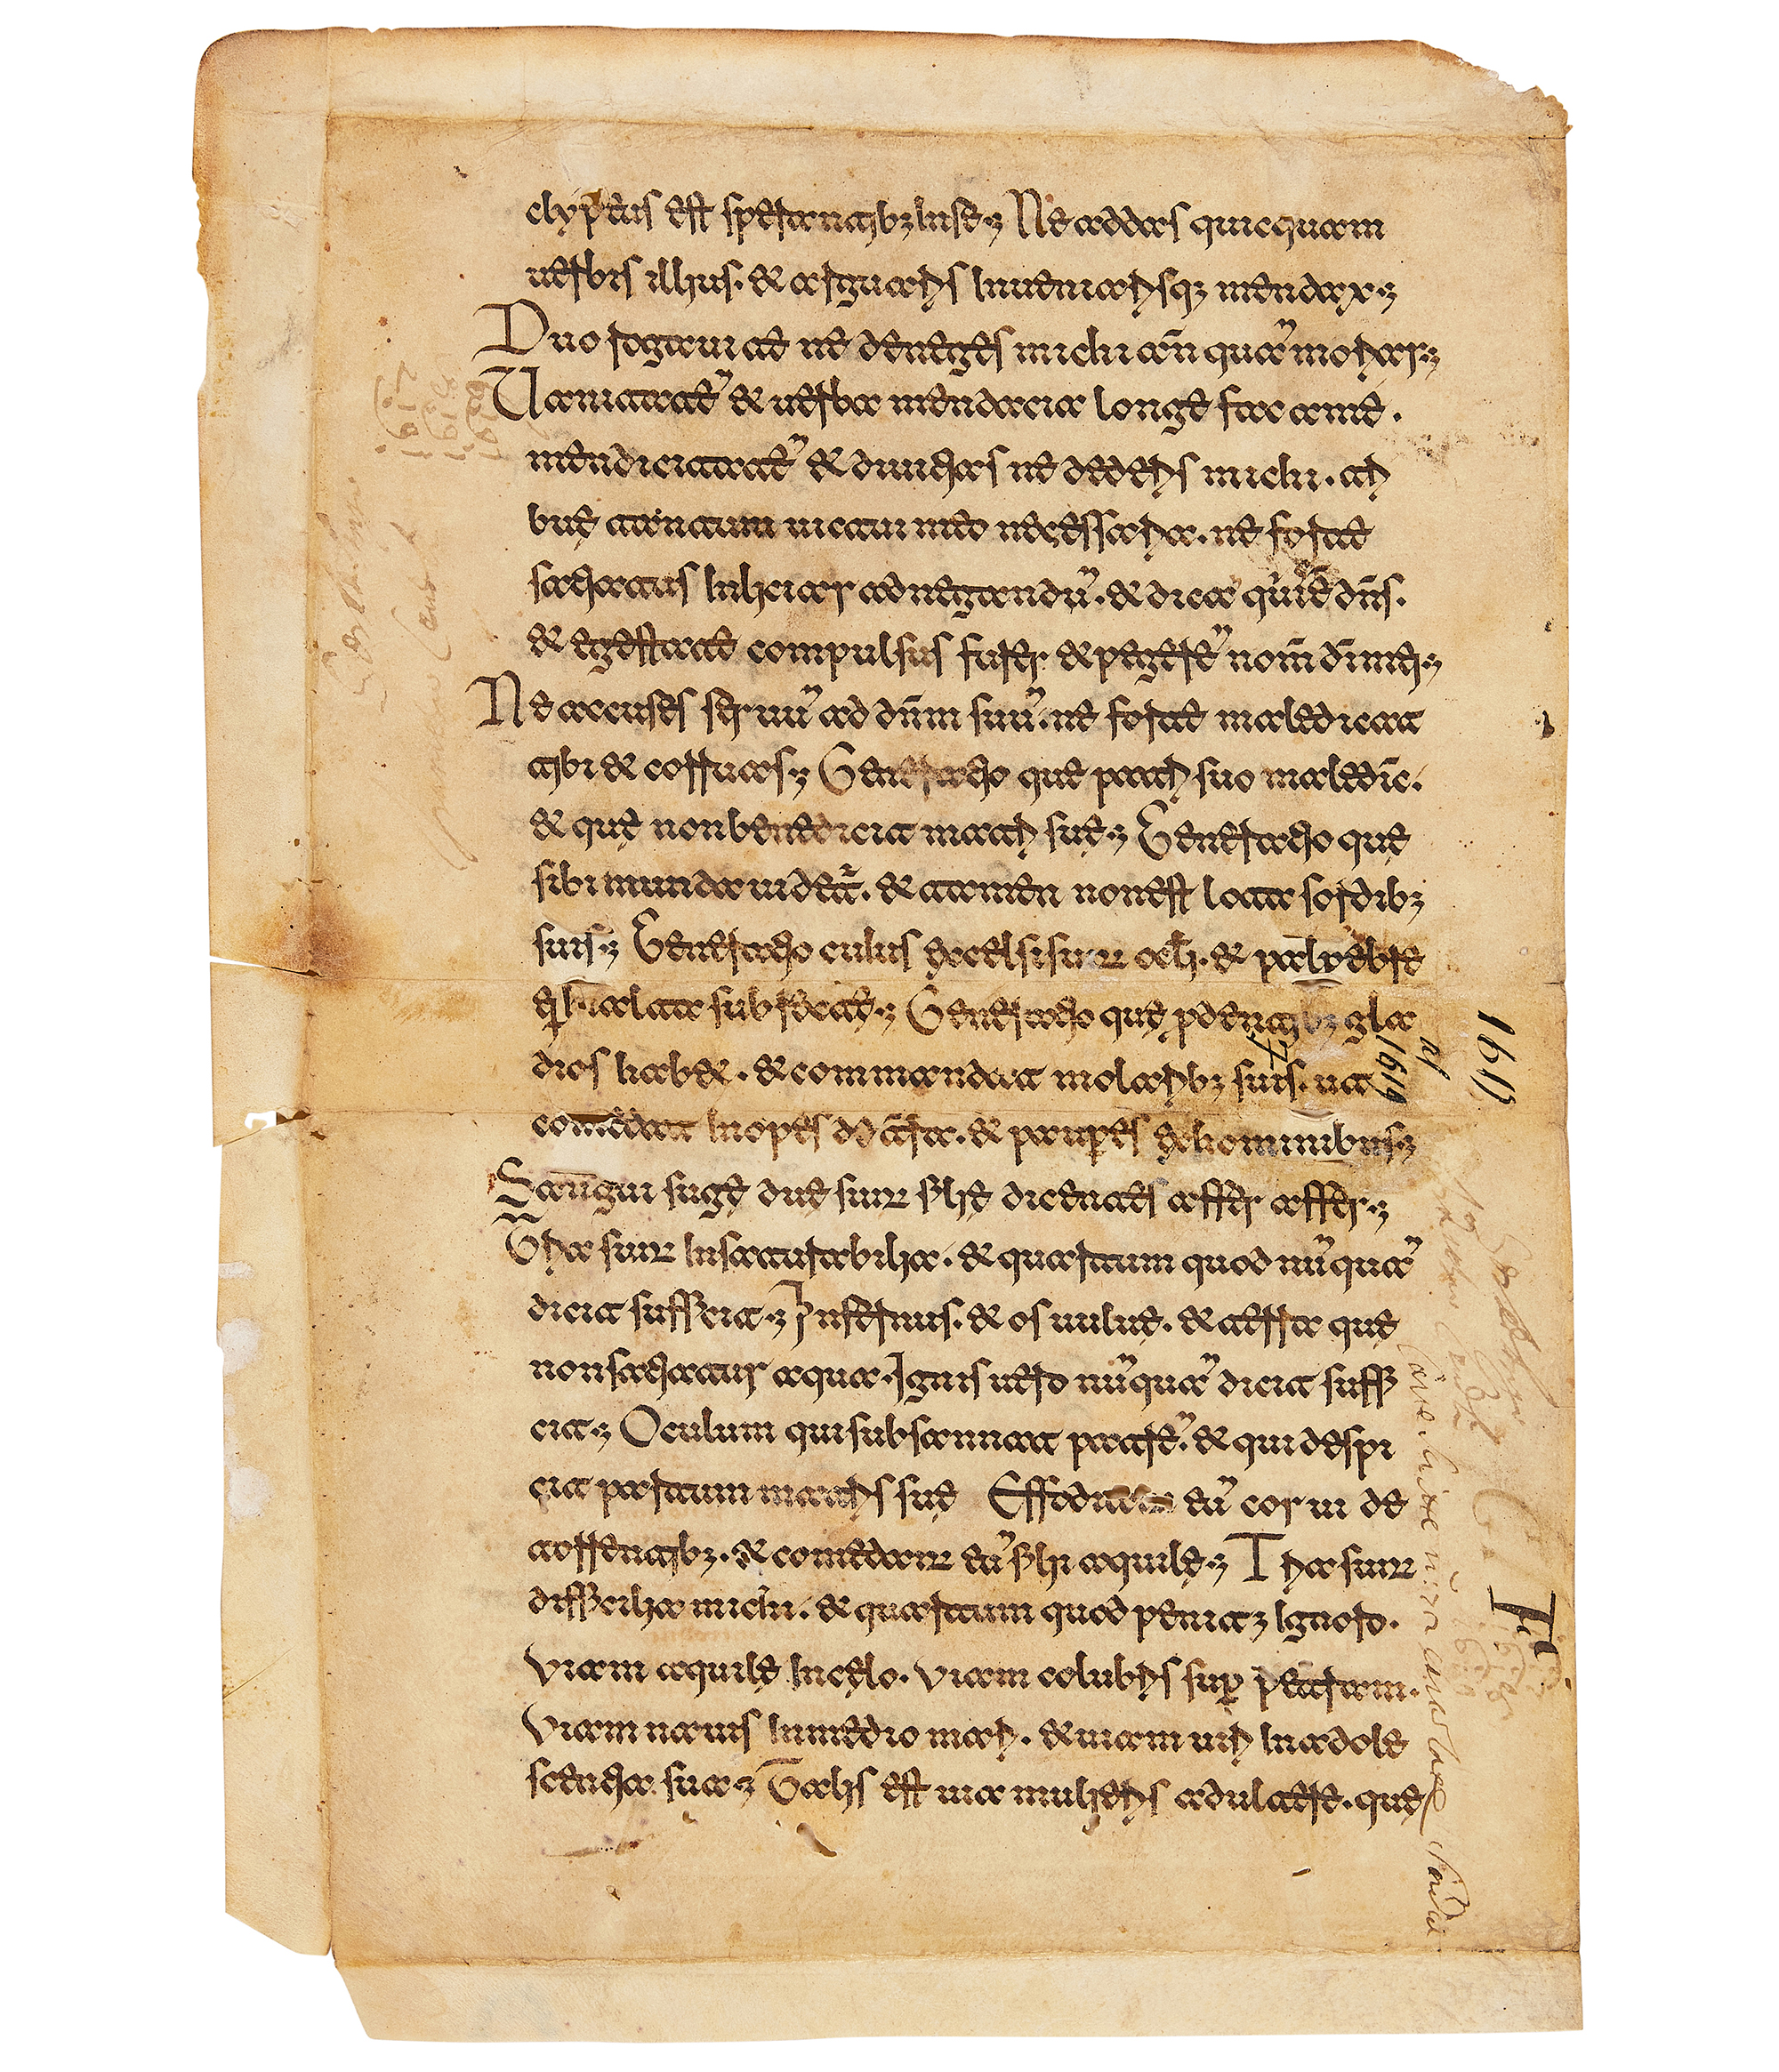 clypeus est sperantibꝫ in se. Ne addas quicquam
uerbis illius. & arguaris inueniarisqꝫ mendax.
Duo rogaui te ne deneges michi an̄ quā moriar.
Uanitatē & uerba mendacia longe fac a me.
mendicitatē & diuitias ne dederis michi. tri
bue tantum uictui meo necessaria. ne forte
satiatus inliciar ad negandū. & dicā quis ē dn̄s.
& egestate compulsus furer & peierē nom̄ dī mei.
Ne accuses seruū ad dn̄m suū. ne forte maledicat
tibi & corruas. Generatio que patri suo maledic̄.
& quę non benedicit matri suę. Generatio quę
sibi munda uidet᷑. & tamen non est lota sordibꝫ
suis. Generatio cuius excelsi sunt ocl̄i. & palpebre
ei in alta subrecte. Generatio quę ꝓ dentibꝫ gla
dios habet. & commandit molaribꝫ suis. ut
comedat inopes de tr̄ra. & pauꝑes ex hominibus.
Sangui sugę due sunt filię dicentes affer affer.
Tria sunt insaturabilia. & quartum quod nūquā
dicit sufficit. Infernus. & os uuluę. & terra quę
non satiatur aqua. Ignis uero nūquā dicit suffi
cit. Oculum qui subsannat patrē. & qui despi
cit partum matris suę Effodiant eū corui de
torrentibꝫ. & comedant eū filii aquilę. Tria sunt
difficilia michi. & quartum quod penitꝫ ignoro.
Viam aquilę in cęlo. Viam colubris suꝑ petram.
Viam nauis in medio mari. & uiam uiri in adole
scentia sua. Talis est uia mulieris adultere. quę
1619